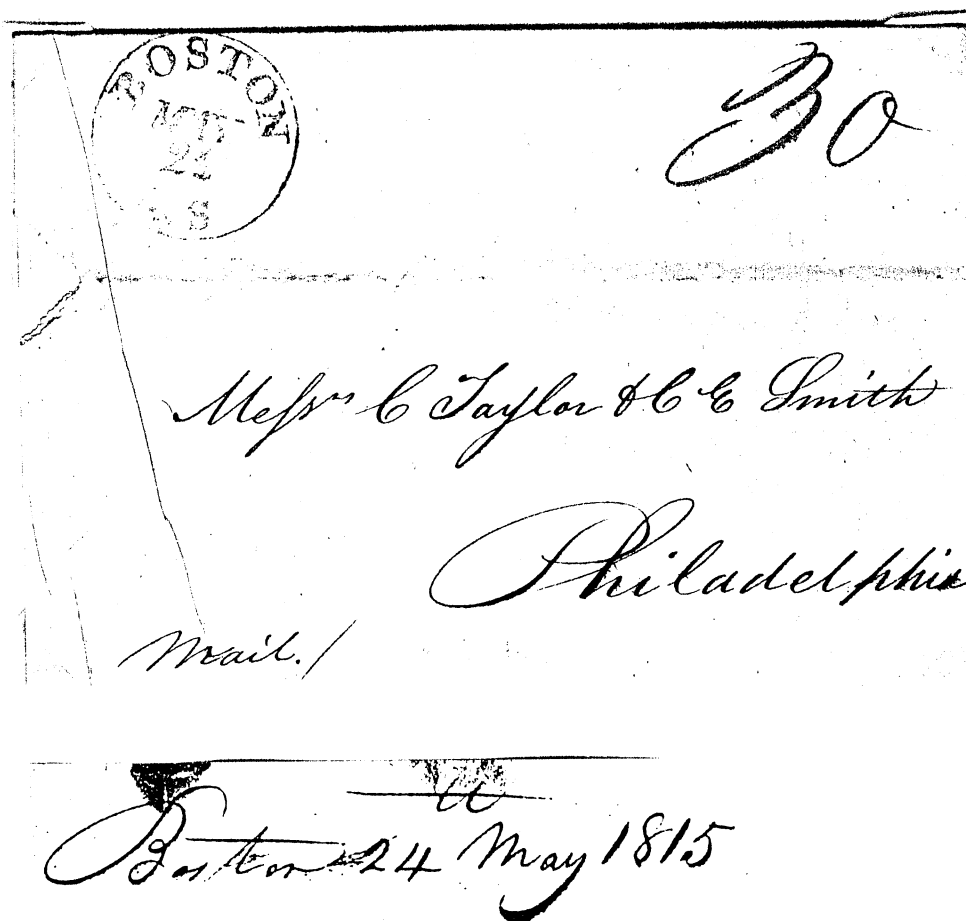 BOSTON
24
30
Messrs C Taylor & C E Smith
Philadelphia
Mail./
Boston 24 May 1815